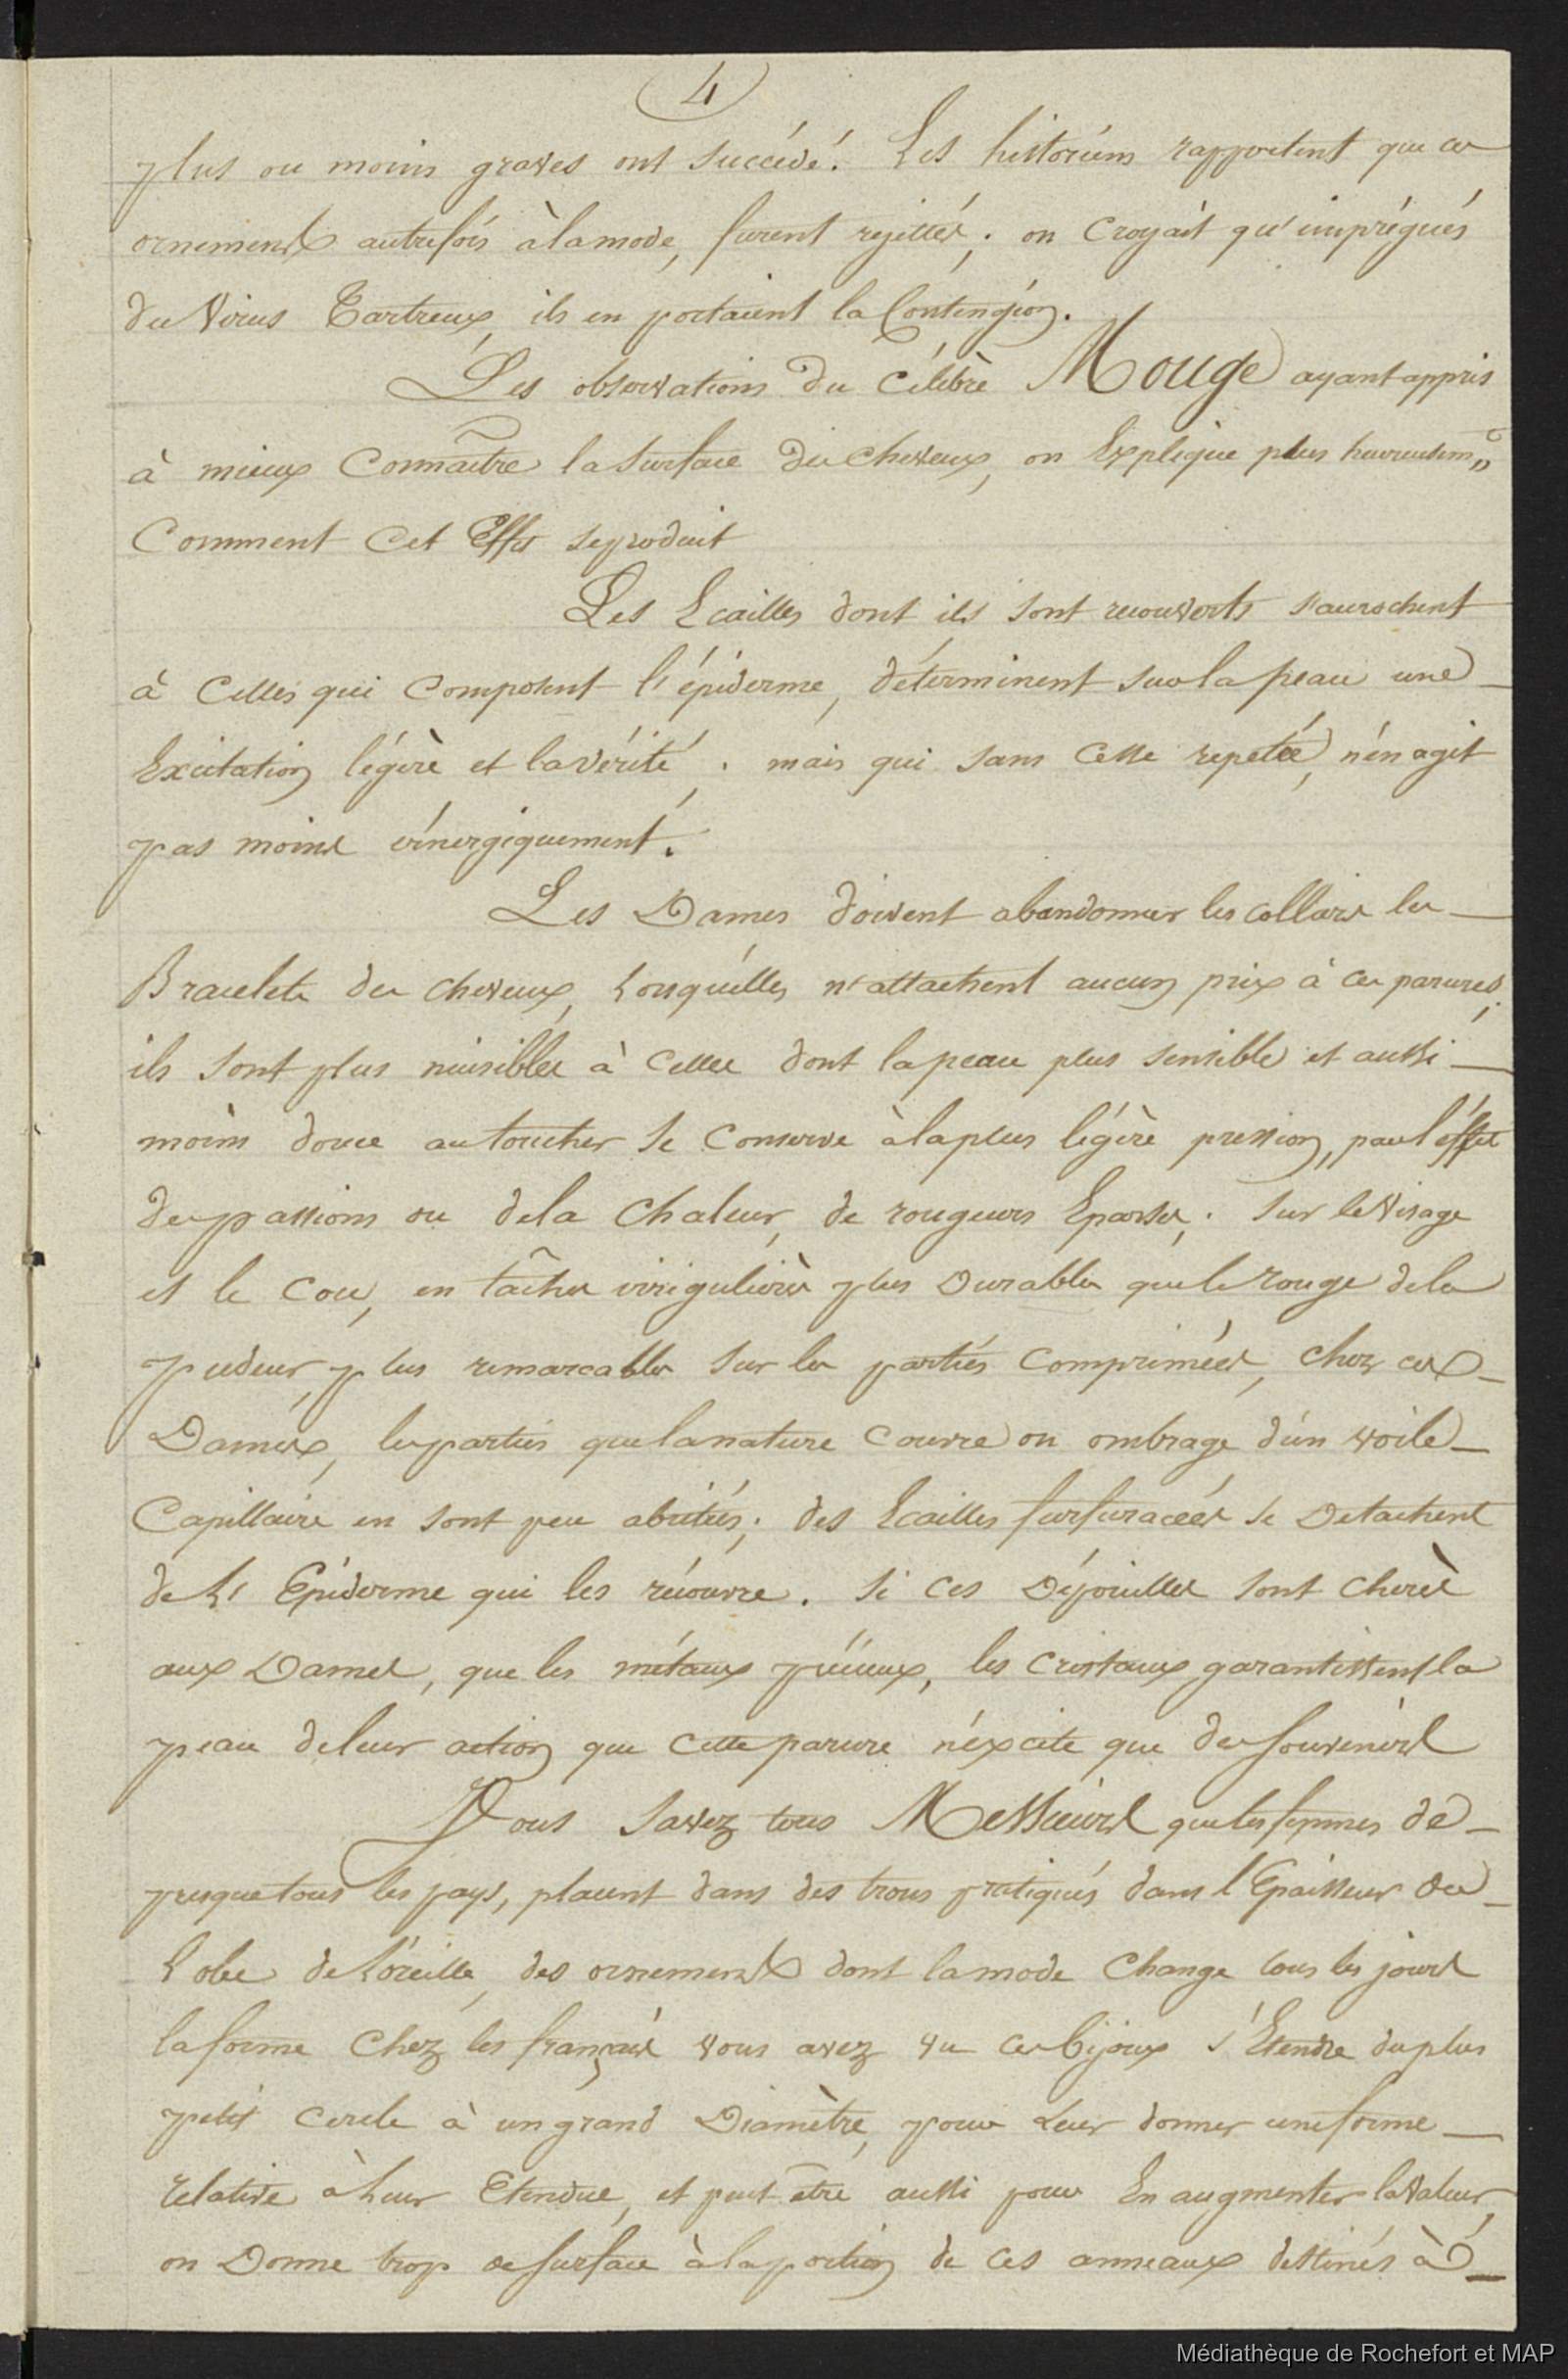 4
plus ou moins graves ont succédé. Les historiens rapportent que ces
ornements autrefois à la mode, furent rejittés; on croyait qu'imprégnés
du virus Dartreux, ils en portaient la Contengion.
Les observations du Célèbre Mouge ayant appris
à mieux Connaître la surface des cheveux, on Explique plus heureusem
Comment Cet Effet se produit
Les Ecailles dont ils sont recouverts s'accrochent
à Celles qui Composent l'épiderme, déterminent sur la peau une
Excitation légère et la vérité; mais qui sans Cesse repetée, n'en agit
pas moins énergiquement.
Les Dames doivent abandonner les Colliers les
Bracelets des cheveux, Lorsqu'elles n'attachent aucun prix à ces parures;
ils sont plus nuisibles à Celles dont la peau plus sensible et aussi
moins douce au toucher se Conserve à la plus légère pression, par l'effet
des passions ou de la Chaleur, de rougeurs Eparses; sur le visage
et le Cou, en tâches irrégulières plus Durables que le rouge de la
pudeur, plus remarcables sur les parties Comprimées, chez ces
Dames, les parties que la nature Couvre ou ombrage d'un voile
Capillaire en sont peu abritées; des Ecailles furfuracées se Detachent
de L'Epiderme qui les récouvre. Si ces Dépouilles sont Chères
aux Dames, que les métaux précieux, les Cristaux garantissent la
peau de leur action que Cette parure n'éxcite que des souvenirs
Vous savez tous Messieurs que les femmes de
presque tous les pays, placent dans des trous pratiqués dans l'Epaisseur du
Lobe de L'oreille, des ornements dont la mode Change tous les jours
la forme Chez les français vous avez vu ces bijoux s'Etendre du plus
petit Cercle à un grand Diamètre, pour Leur donner une forme
relative à Leur Etendue, et peut être aussi pour En augmenter la valeur,
on Donne trop de surface à la portion de ces anneaux destinés à
Médiathèque de Rochefort et MAP